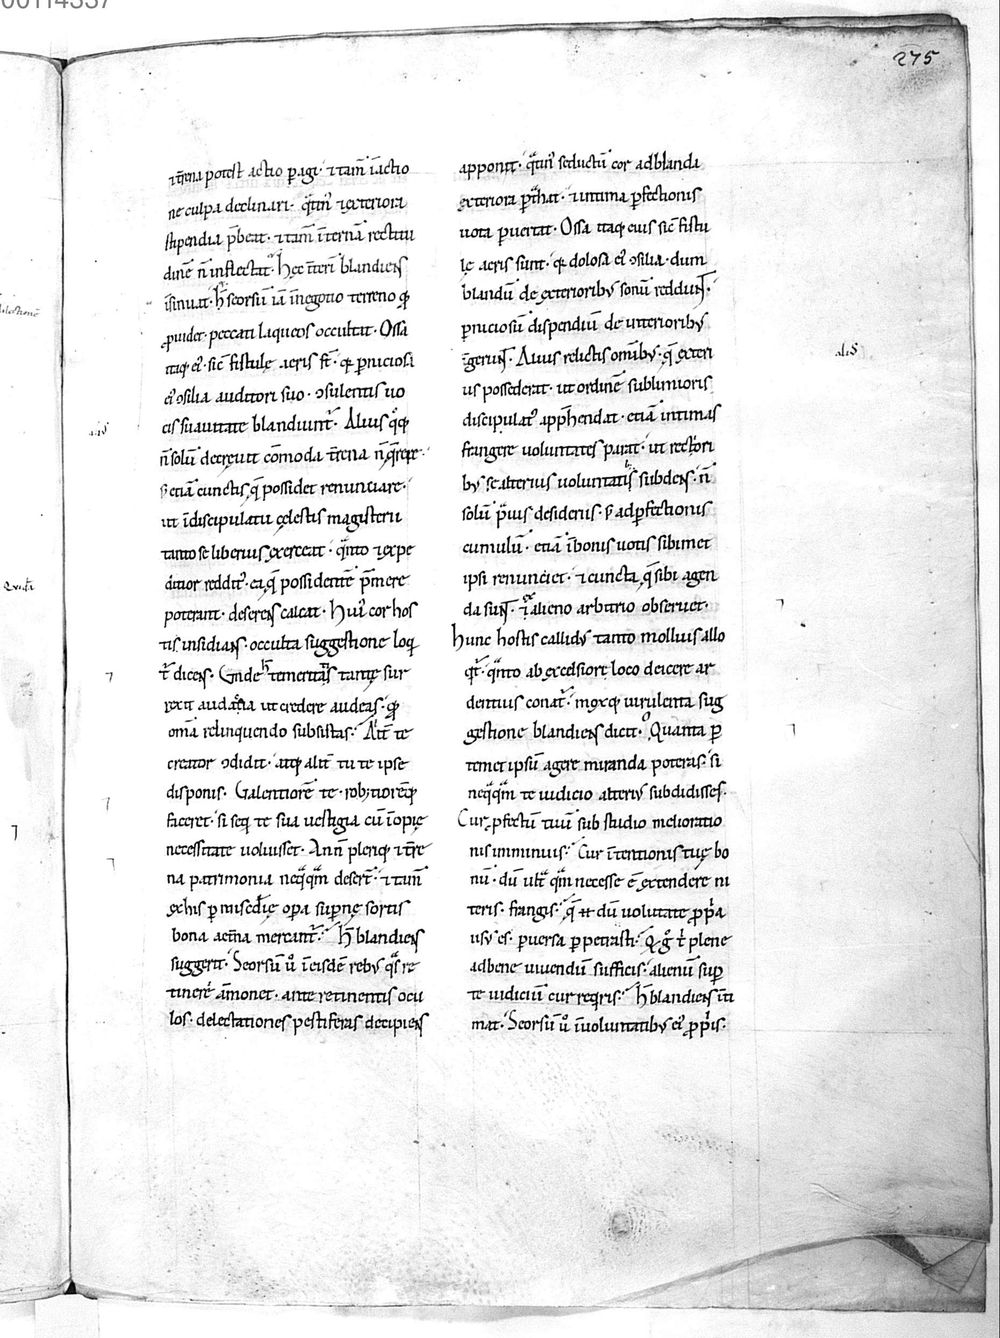 00114337
275
t̄rena potest actio p̲agi· ⁊tam̄ ī actio
ne culpa declinari· q̄tin᷒ ⁊exteriora
stipendia p̄beat· ⁊tam̄ īternā rectitu
dinē n̄ inflectat᷒· Hec īteri blandiens
īsinuat· h̄ seorsū iā ī negotio terreno q̲
p̲uidet· peccati laqueos occultat· Ossa
itaq; ei᷒· sic̄ fistule aeris st̄· q̲ p̲niciosa
ei᷒ ꝯsilia auditori suo· ꝯsulentis uo
cis suauitate blandiunt᷒· Alius q̊q;
n̄ solū decreuit cōmoda t̄rena n̄ q̄rere·
s; etiā cunctis q̨ possidet renunciare·
ut ī discipulatu cęlestis magisterii
tanto se liberius exerceat· q̄nto ⁊expe
ditior reddit᷒· ea q̨ possidentē p̄mere
poterant· deserens calcat· Hui᷒ cor hos
tis insidians· occulta suggestione loq
t᷒ dicens· Unde h̄ temeritatis tantę sur
rexit audacia ut credere audeas· q̲
omīa relinquendo subsistas· Alit̄ te
creator ꝯdidit· atq; alit̄ tu te ipse
disponis· Ualentiorē te· rob;tiorēq;
faceret· si seq te sua uestigia cū īopię
necessitate uoluisset· An n̄ pleriq; ⁊t̄re
na patrimonia neq̄q̄m desert̄· ⁊tam̄
ex his p̲ misedię opa supnę sortis
bona aet̄na mercant᷒· H̄ blandiens
suggerit· Seorsū ů ī eisdē reb᷒ q̄s re
tinere āmonet· ante retinentis ocu
los· delectationes pestiferas decipiens
apponit· q̄tin᷒ seductū cor ad blanda
exteriora p̲t̄hat· ⁊intima p̲fectionis
uota p̲uertat· Ossa itaq; eius sic̄ fistu
lę aeris sunt· q̲ dolosa ei᷒ ꝯsilia· dum
blandū de exteriorib᷒ sonū reddunt·
p̲niciosū dispendiū de interiorib᷒
īgerunt· Alius relictis omīb᷒· q̨ exteri
us possederat· ut ordinē sublimioris
discipulat᷒ app̄hendat· etiā intimas
frangere uoluntates parat· ut rectiori
b᷒ se alterius uoluntatib᷒ subdens· n̄
solū p̄uis desideriis· s; ad p̲fectionis
cumulū· etiā ī bonis uotis sibimet
ipsi renunciet· ⁊ cuncta q̨ sibi agen
da sunt· ex alieno arbitrio obseruet·
Hunc hostis callid᷒ tanto mollius allo
q̄t᷒· q̄nto ab excelsiore loco deicere ar
dentius conat᷒· moxq; uirulenta sug
gestione blandiens dicit· O Quanta p̲
temet ipsū agere miranda poteras· si
neq̄q̄m te iudicio alteri᷒ subdidisses·
Cur p̲fectū tuū sub studio melioratio
nis imminuis· Cur ītentionis tuę bo
nū· dū ult᷒ q̄m necesse ē̄ extendere ni
teris· frangis· q̨ ... dū uolūtate p̲p̲a
usus es· p̲uersa p̲petrasti· Q g̊ t̄ plene
ad bene uiuendū sufficis· alienū sup̲
te iudiciū cur req̄ris· H̄ blandiens īti
mat· Seorsū ů ī uoluntatib᷒ ei᷒ p̲p̲is·